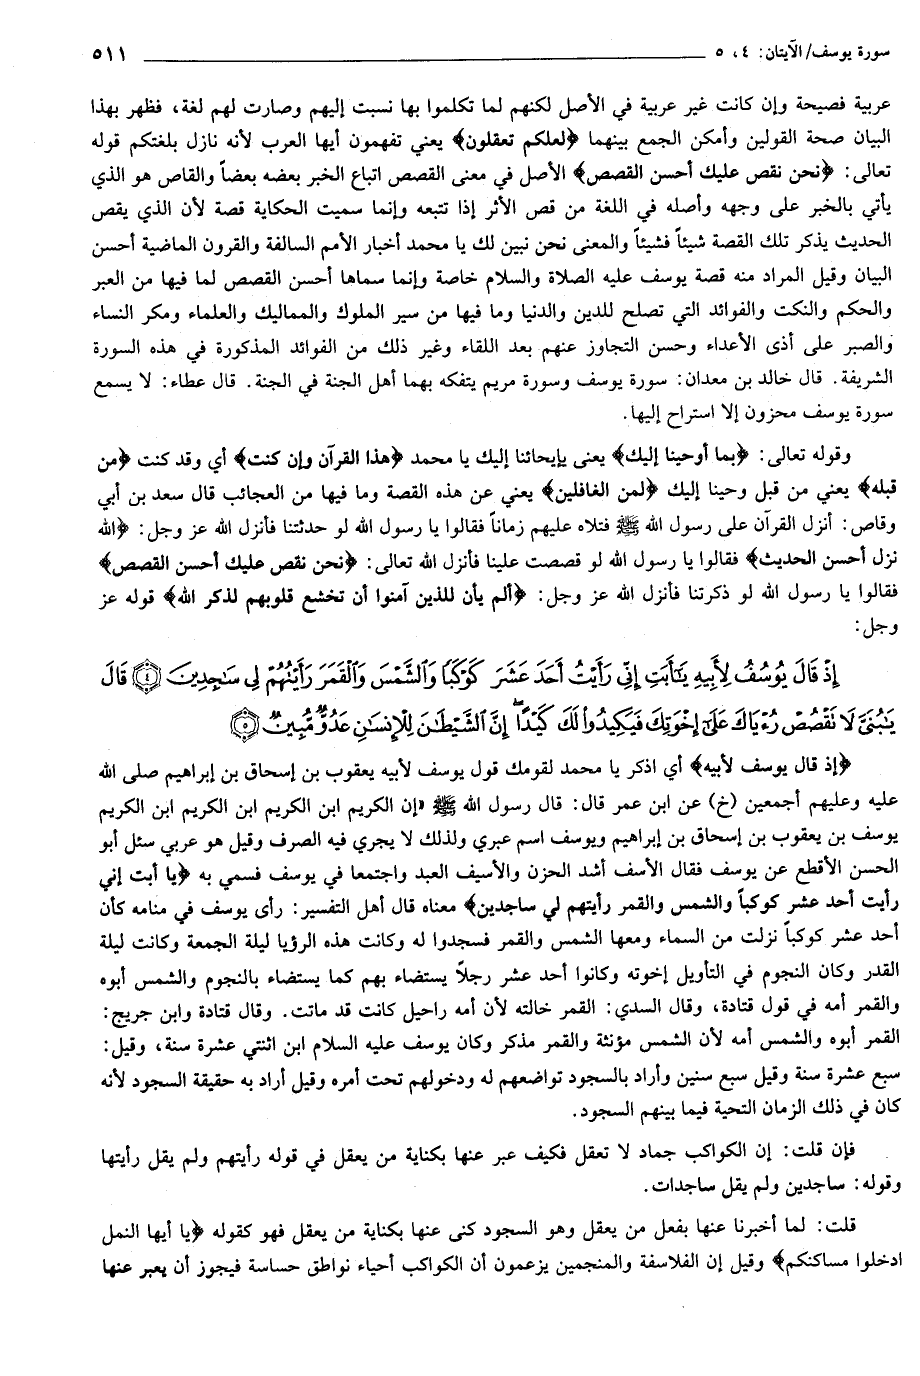 سورة يوسف/ الآيتان: ٤، ٥ ٥١١
عربية فصيحة وإن كانت غير عربية في الأصل لكنهم لما تكلموا بها نسبت إليهم وصارت لهم لغة، فظهر بهذا
البيان صحة القولين وأمكن الجمع بينهما ﴿لعلكم تعقلون﴾ يعني تفهمون أيها العرب لأنه نازل بلغتكم قوله
تعالى: ﴿نحن نقص عليك أحسن القصص﴾ الأصل في معنى القصص اتباع الخبر بعضه بعضاً والقاص هو الذي
يأتي بالخبر على وجهه وأصله في اللغة من قص الأثر إذا تتبعه وإنما سميت الحكاية قصة لأن الذي يقص
الحديث يذكر تلك القصة شيئاً فشيئاً والمعنى نحن نبين لك يا محمد أخبار الأمم السالفة والقرون الماضية أحسن
البيان وقيل المراد منه قصة يوسف عليه الصلاة والسلام خاصة وإنما سماها أحسن القصص لما فيها من العبر
والحكم والنكت والفوائد التي تصلح للدين والدنيا وما فيها من سير الملوك والمماليك والعلماء ومكر النساء
والصبر على أذى الأعداء وحسن التجاوز عنهم بعد اللقاء وغير ذلك من الفوائد المذكورة في هذه السورة
الشريفة. قال خالد بن معدان: سورة يوسف وسورة مريم يتفكه بهما أهل الجنة في الجنة. قال عطاء: لا يسمع
سورة يوسف محزون إلا استراح إليها.
وقوله تعالى: ﴿بما أوحينا إليك﴾ يعنى بإيحائنا إليك يا محمد ﴿هذا القرآن وإن كنت﴾ أي وقد كنت ﴿من
قبله﴾ يعني من قبل وحينا إليك ﴿لمن الغافلين﴾ يعني عن هذه القصة وما فيها من العجائب قال سعد بن أبي
وقاص: أنزل القرآن على رسول الله ﷺ فتلاه عليهم زماناً فقالوا يا رسول الله لو حدثتنا فأنزل الله عز وجل: ﴿الله
نزل أحسن الحديث﴾ فقالوا يا رسول الله لو قصصت علينا فأنزل الله تعالى: ﴿نحن نقص عليك أحسن القصص﴾
فقالوا يا رسول الله لو ذكرتنا فأنزل الله عز وجل: ﴿ألم يأن للذين آمنوا أن تخشع قلوبهم لذكر الله﴾ قوله عز
وجل:
إِذْ قَالَ يُوسُفُ لِأَبِيهِ يَٰٓأَبَتِ إِنِّي رَأَيْتُ أَحَدَ عَشَرَ كَوْكَبًا وَٱلشَّمْسَ وَٱلْقَمَرَ رَأَيْتُهُمْ لِي سَٰجِدِينَ ﴿٤﴾ قَالَ
يَٰبُنَيَّ لَا نَقْصُصْ رُءْيَاكَ عَلَىٰٓ إِخْوَتِكَ فَيَكِيدُوا۟ لَكَ كَيْدًا ۖ إِنَّ ٱلشَّيْطَٰنَ لِلْإِنسَٰنِ عَدُوٌّ مُّبِينٌ ﴿٥﴾
﴿إذ قال يوسف لأبيه﴾ أي اذكر يا محمد لقومك قول يوسف لأبيه يعقوب بن إسحاق بن إبراهيم صلى الله
عليه وعليهم أجمعين (خ) عن ابن عمر قال: قال رسول الله ﷺ «إن الكريم ابن الكريم ابن الكريم ابن الكريم
يوسف بن يعقوب بن إسحاق بن إبراهيم ويوسف اسم عبري ولذلك لا يجري فيه الصرف وقيل هو عربي سئل أبو
الحسن الأقطع عن يوسف فقال الأسف أشد الحزن والأسيف العبد واجتمعا في يوسف فسمي به ﴿يا أبت إني
رأيت أحد عشر كوكباً والشمس والقمر رأيتهم لي ساجدين﴾ معناه قال أهل التفسير: رأى يوسف في منامه كأن
أحد عشر كوكباً نزلت من السماء ومعها الشمس والقمر فسجدوا له وكانت هذه الرؤيا ليلة الجمعة وكانت ليلة
القدر وكان النجوم في التأويل إخوته وكانوا أحد عشر رجلاً يستضاء بهم كما يستضاء بالنجوم والشمس أبوه
والقمر أمه في قول قتادة، وقال السدي: القمر خالته لأن أمه راحيل كانت قد ماتت. وقال قتادة وابن جريج:
القمر أبوه والشمس أمه لأن الشمس مؤنثة والقمر مذكر وكان يوسف عليه السلام ابن اثنتي عشرة سنة، وقيل:
سبع عشرة سنة وقيل سبع سنين وأراد بالسجود تواضعهم له ودخولهم تحت أمره وقيل أراد به حقيقة السجود لأنه
كان في ذلك الزمان التحية فيما بينهم السجود.
فإن قلت: إن الكواكب جماد لا تعقل فكيف عبر عنها بكناية من يعقل في قوله رأيتهم ولم يقل رأيتها
وقوله: ساجدين ولم يقل ساجدات.
قلت: لما أخبرنا عنها بفعل من يعقل وهو السجود كنى عنها بكناية من يعقل فهو كقوله ﴿يا أيها النمل
ادخلوا مساكنكم﴾ وقيل إن الفلاسفة والمنجمين يزعمون أن الكواكب أحياء نواطق حساسة فيجوز أن يعبر عنها